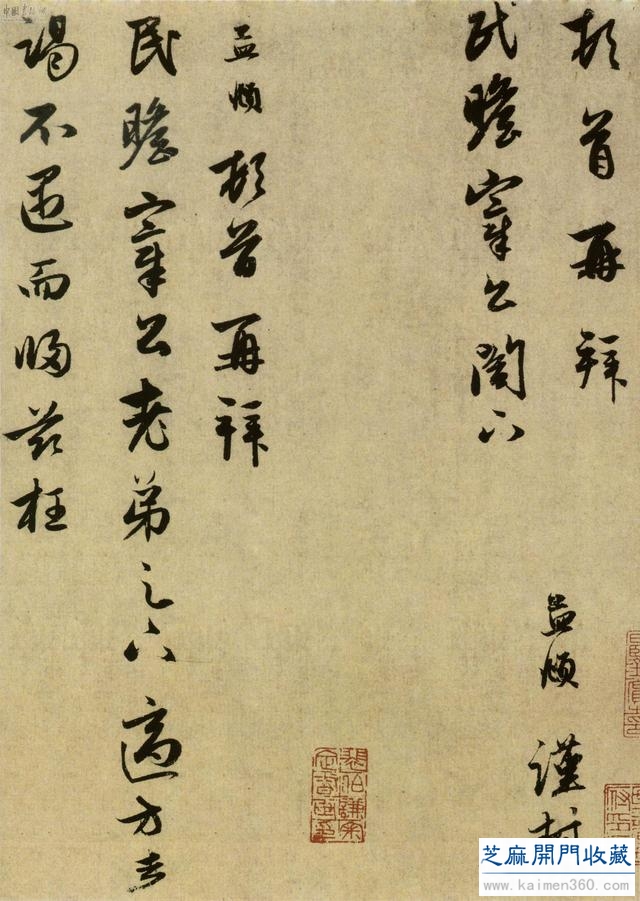 頓首再拜
孟頫 謹
民瞻宰公閣下
孟頫頓首再拜
民瞻宰公老弟足下適方去
謁不遇而歸茲枉
芝麻開門收藏
www.kaimen360.com